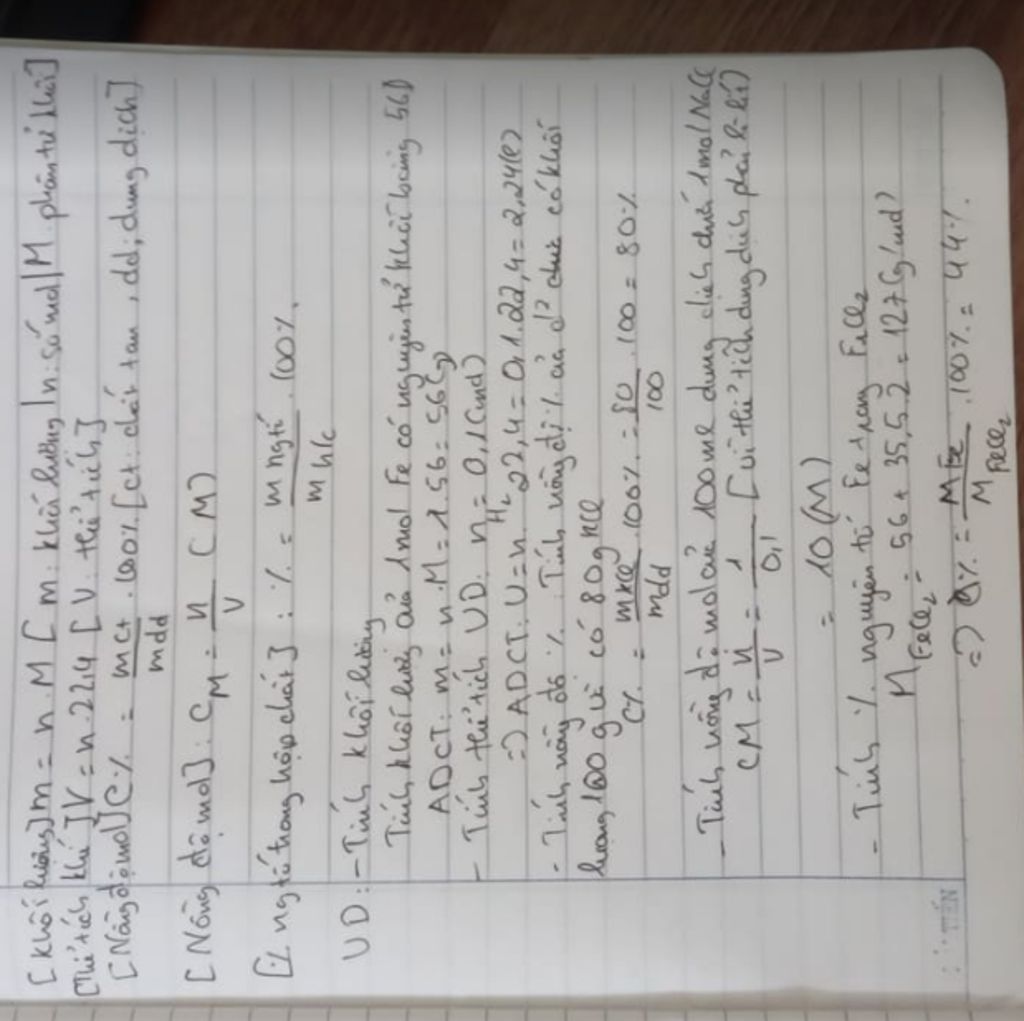 [khối lượng] m = n.M [m: khối lượng | n: số mol | M: phân tử khối]
[Thể tích khí] V = n.22,4 [V: thể tích]
[Nồng độ mol] C% = mct/mdd .100% [ct: chất tan, dd: dung dịch]
[Nồng độ mol]: CM = n/V (M)
[% ng tố trong hợp chất]: % = m ng tố/m h/c .100%.
UD: - Tính khối lượng
Tính khối lượng của 1mol Fe có nguyên tử khối bằng 56đ
ADCT: m = n.M = 1.56 = 56(g)
- Tính thể tích VD: nH2 = 0,1(mol)
=> ADCT: V = n.22,4 = 0,1.22,4 = 2,24(l)
- Tính nồng độ %. Tính nồng độ % của d² có khối
lượng 100g vì có 80g KCl
C% = mKCl/mdd .100% = 80/100 .100 = 80%
- Tính nồng độ mol của 100ml dung dịch chứa 1mol NaCl
CM = n/V = 1/0,1 [vì thể tích dung dịch phải là lít]
= 10(M)
- Tính % nguyên tố Fe trong FeCl2
MFeCl2 = 56 + 35,5.2 = 127(g/mol)
=> % = MFe/MFeCl2 .100% = 44%.
TIẾN